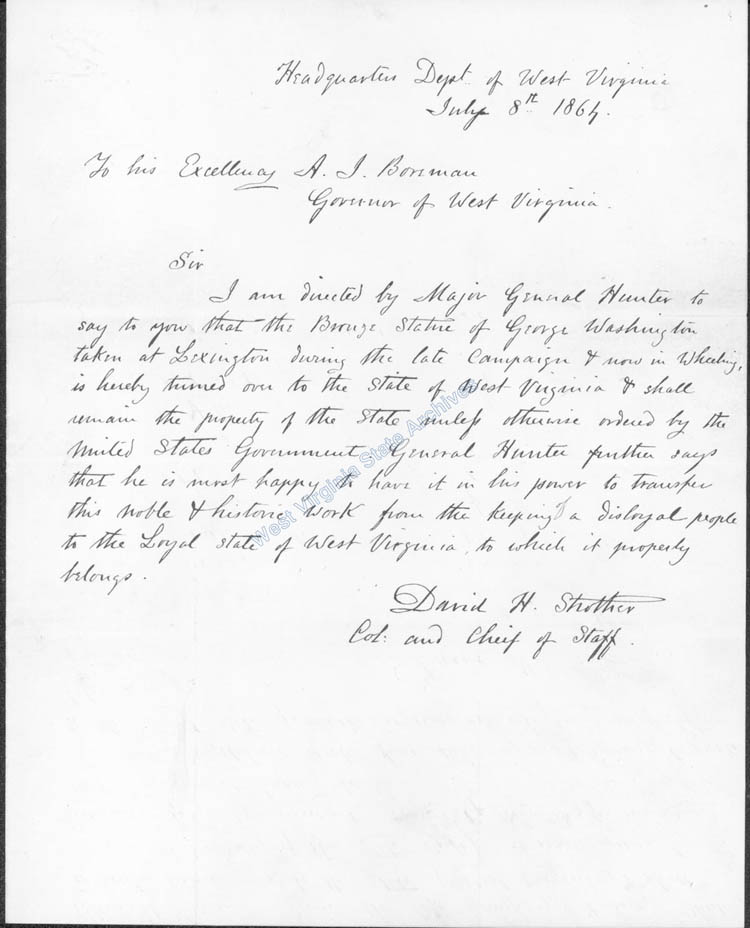 Headquarters Dept. of West Virginia
July 8th 1864.
To his Excellency A. I. Boreman
Governor of West Virginia.
Sir
I am directed by Major General Hunter to
say to you that the Bronze Statue of George Washington
taken at Lexington during the late Campaign & now in Wheeling,
is hereby turned over to the State of West Virginia & shall
remain the property of the State unless otherwise ordered by the
United States Government General Hunter further says
that he is most happy to have it in his power to transfer
this noble & historic work from the keeping of a disloyal people
to the Loyal state of West Virginia, to which it property
belongs.
David H. Strother
Col: and Cheif of Staff.
West Virginia State Archives